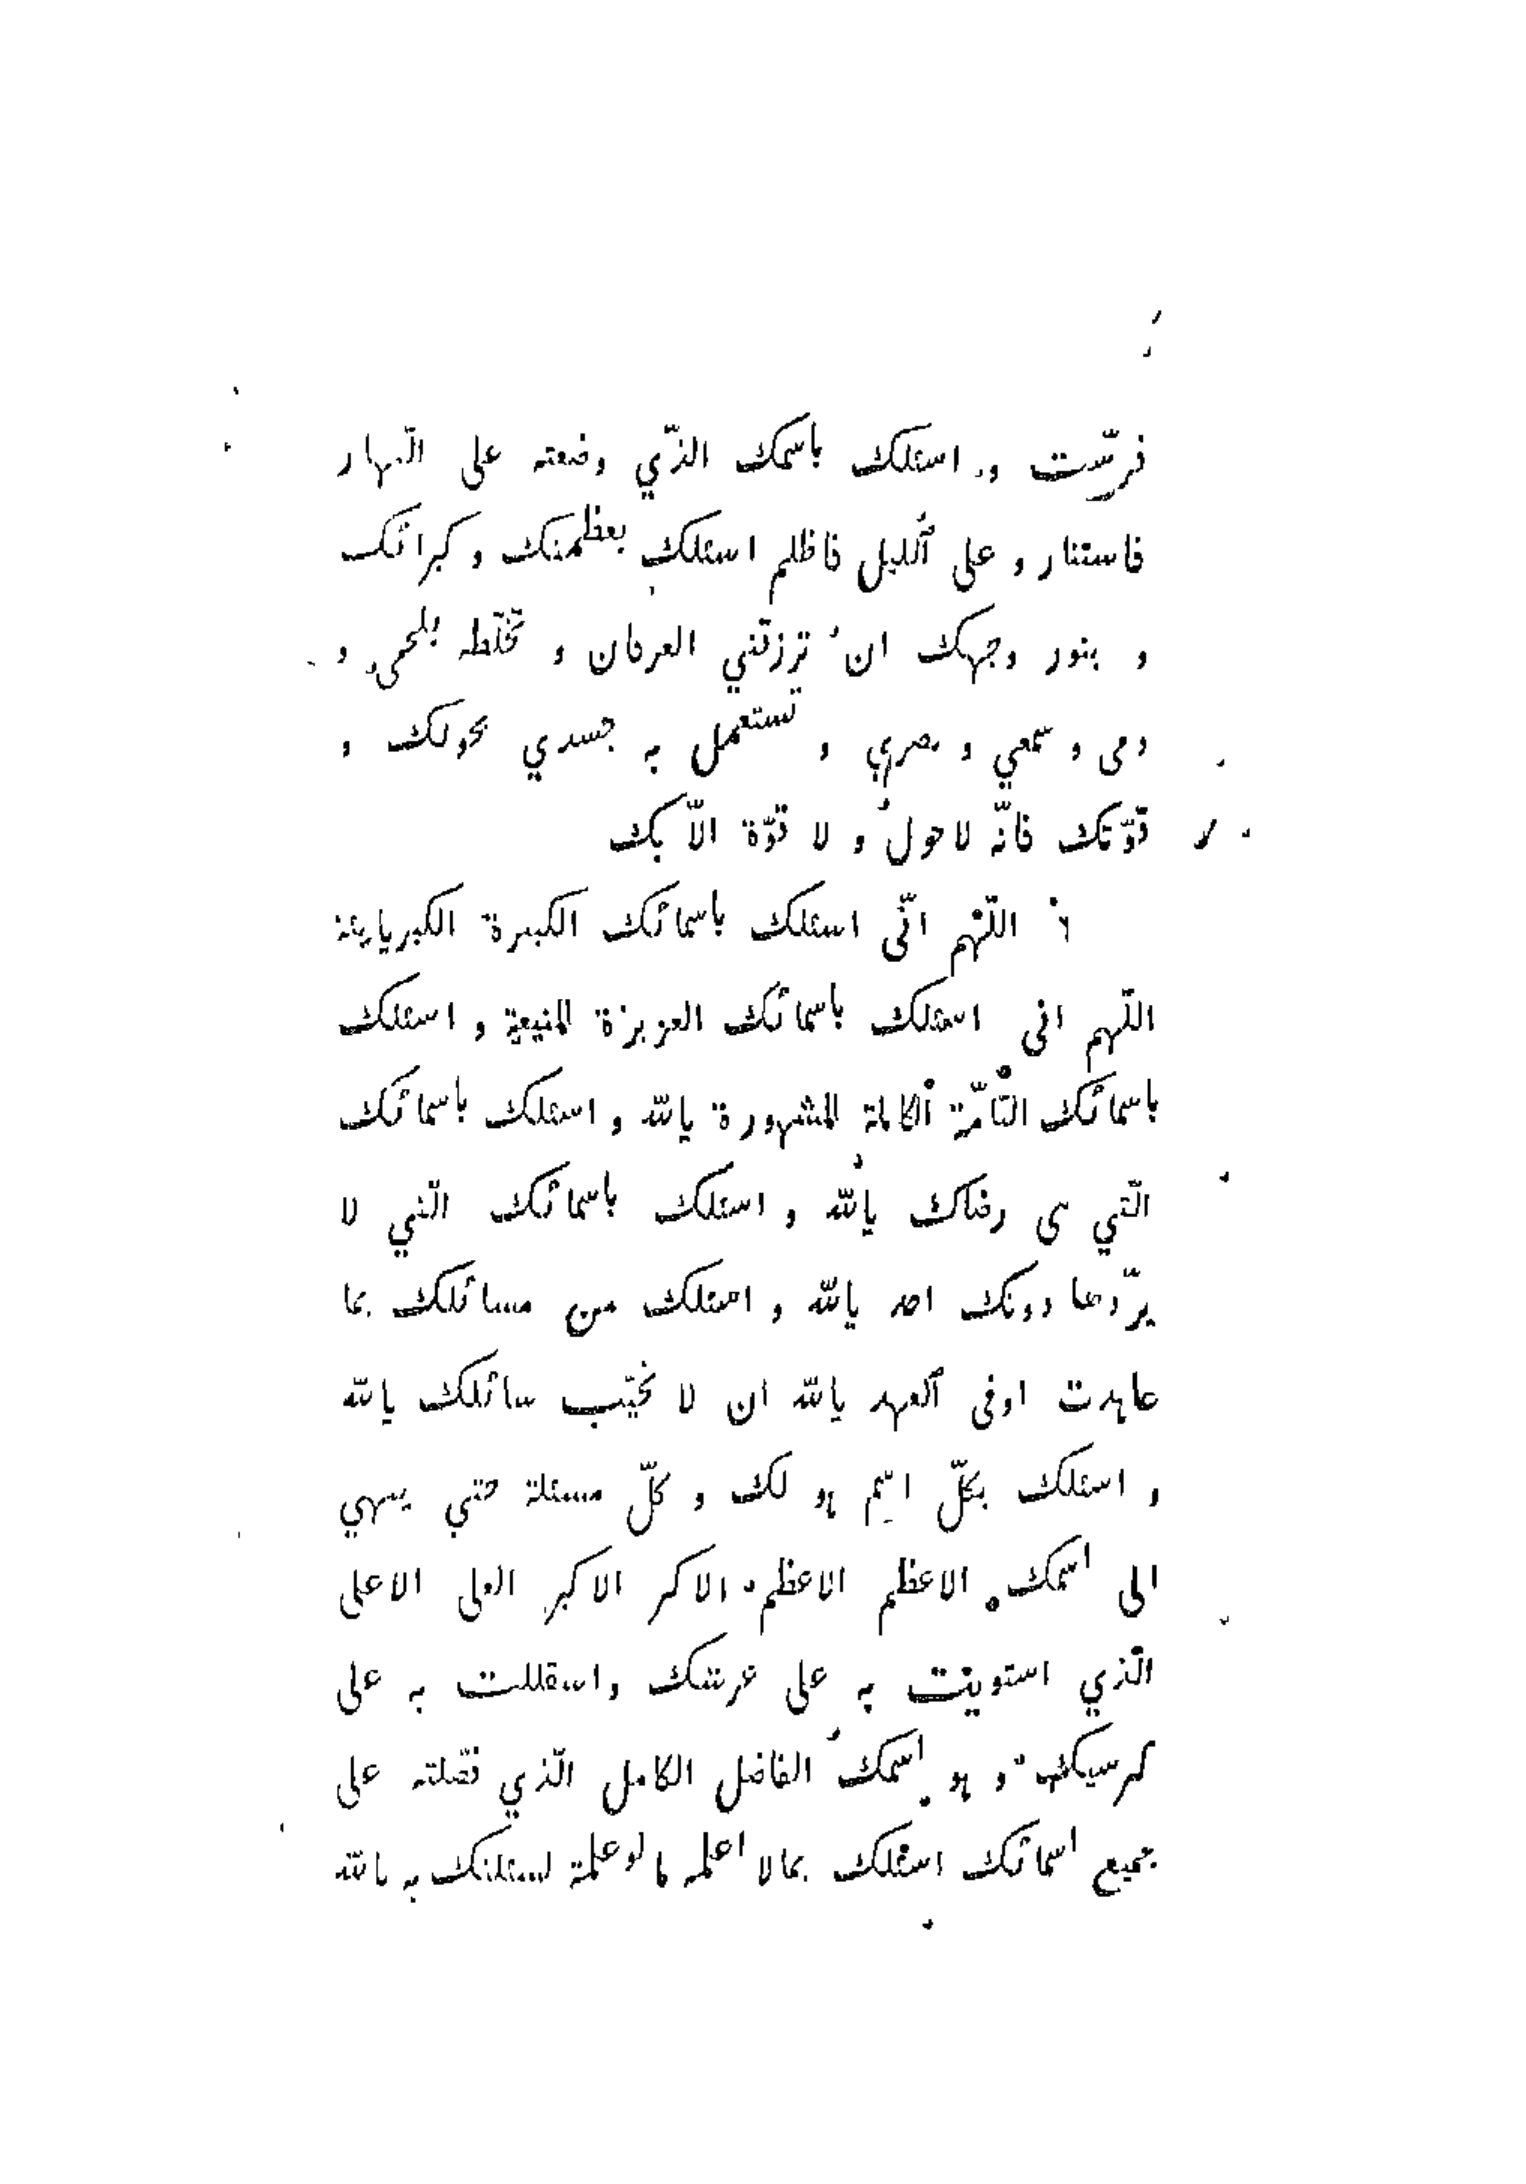 فرسّت و اسئلك باسمك الذّي وضعته على النّهار
فاستنار و على ٱلليل فاظلم اسئلك بعظمتك و كبرائك
و بنور وجهك ان ترزقني العرفان و تخلّطه بلحمى و
دمى و سمعي و بصري و تستعمل به جسدي بحولك و
قوّتك فانّه لا حول و لا قوّة الاّ بك
اللّهم انّى اسئلك باسمائك الكبيرة الكبريايئة
اللّهم انى اسئلك باسمائك العزيزة المنيعة و اسئلك
باسمائك التّامّة ٱلكاملة المشهورة يالله و اسئلك باسمائك
الّتي هى رضاك يالله و اسئلك باسمائك الّتي لا
يردّها دونك احد يالله و اسئلك من مسائلك بما
عاهدت اوفى ٱلعهد يالله ان لا تخيّب سائلك يالله
و اسئلك بكلّ اسم هو لك و كلّ مسئلة حتي ينتهي
الى اسمك الاعظم الاعظم الاكبر الاكبر العلى الاعلى
الّذي استويت به على عرشك و استقللت به على
كرسيك و هو اسمك الفاضل الكامل الّذي فضّلته على
جميع اسمائك اسئلك بمالا اعلمه مالو علمته لسئلتك به يالله